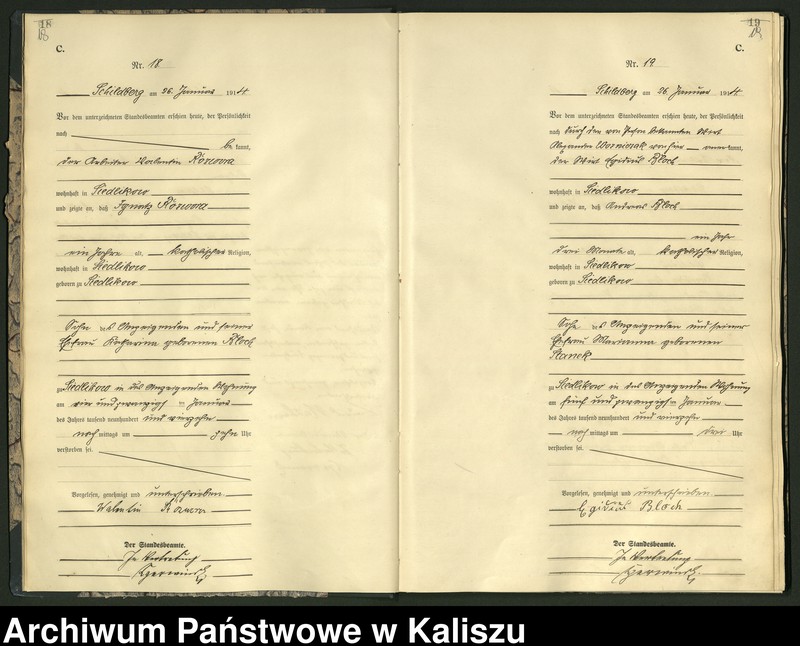 18
18
C.
Nr. 18
Schildberg am 26. Januar 1914.
Vor dem unterzeichneten Standesbeamten erschien heute, der Persönlichkeit
nach
be kannt,
der Arbeiter Valentin
wohnhaft in Siedlikow
und zeigte an, daß Ignatz
ein Jahre alt, katholischer Religion,
wohnhaft in Siedlikow
geboren zu Siedlikow
Sohn des Anzeigenden und seiner
Ehefrau Katharina geborenen Bloch
zu Siedlikow in des Anzeigenden Wohnung
am vier und zwanzigsten Januar
des Jahres tausend neunhundert und vierzehn
nach mittags um zehn Uhr
verstorben sei.
Vorgelesen, genehmigt und unterschrieben
Walentin
Der Standesbeamte.
In Vertretung
19
19
C.
Nr. 19
Schildberg am 26. Januar 1914.
Vor dem unterzeichneten Standesbeamten erschien heute, der Persönlichkeit
nach durch den von Person bekannten Wirt
Woźniak von hier anerkannt,
der Wirt Egidius Bloch
wohnhaft in Siedlikow
und zeigte an, daß Andreas Bloch
ein Jahr
drei Monate alt, katholischer Religion,
wohnhaft in Siedlikow
geboren zu Siedlikow
Sohn des Anzeigenden und seiner
Ehefrau Marianna geborenen
Stanek
zu Siedlikow in des Anzeigenden Wohnung
am fünf und zwanzigsten Januar
des Jahres tausend neunhundert und vierzehn
nach mittags um drei Uhr
verstorben sei.
Vorgelesen, genehmigt und unterschrieben
Egidius Bloch
Der Standesbeamte.
In Vertretung
Archiwum Państwowe w Kaliszu